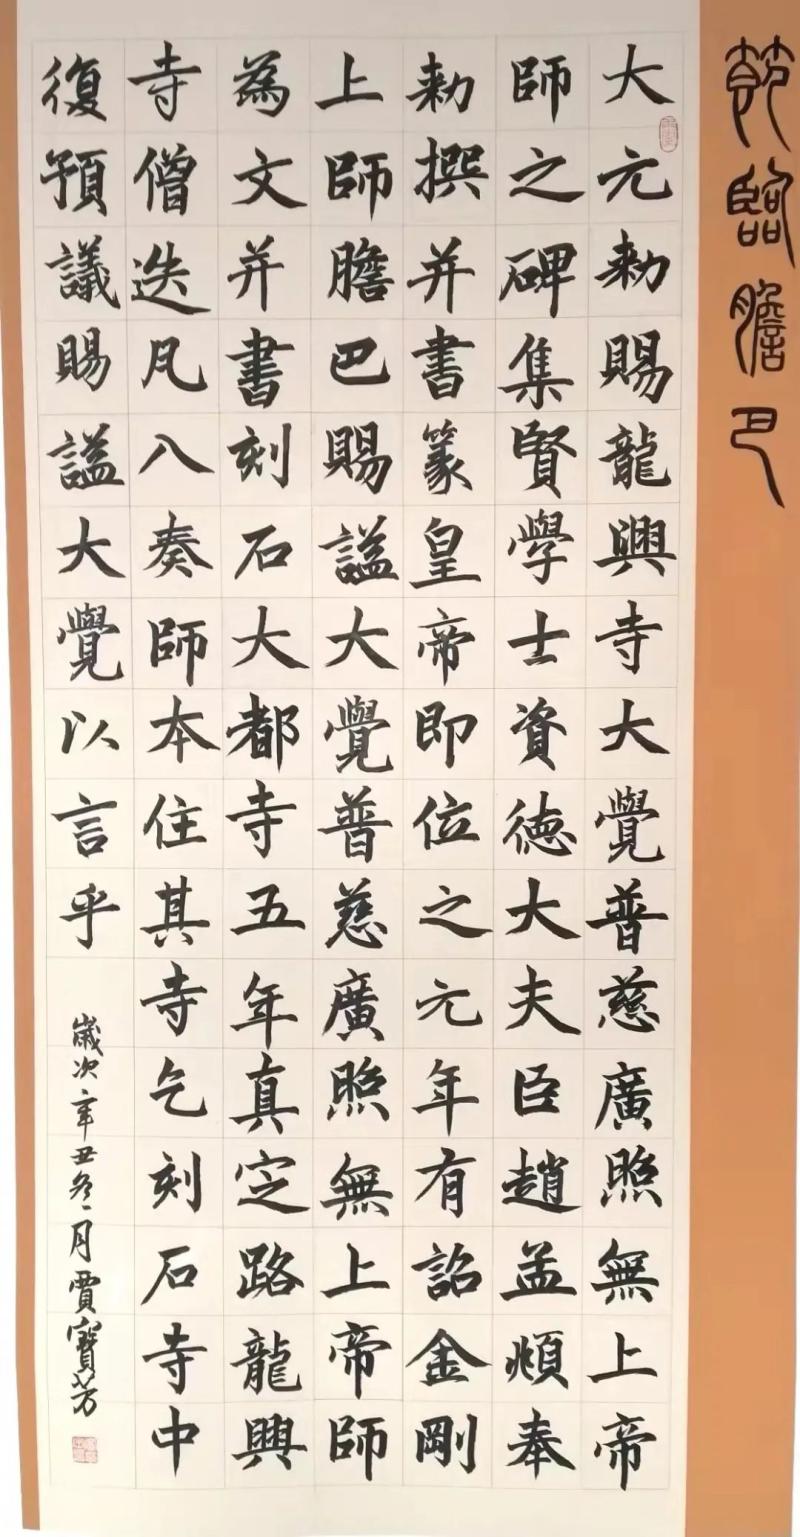 節臨膽巴
大元勅賜龍興寺大覺普慈廣照無上帝
師之碑集賢學士資德大夫臣趙孟頫奉
勅撰并書篆皇帝即位之元年有詔金剛
上師膽巴賜謚大覺普慈廣照無上帝師
為文并書刻石大都寺五年真定路龍興
寺僧迭凡八奏師本住其寺乞刻石寺中
復預議賜謚大覺以言乎
歲次辛丑冬月賈寶芳